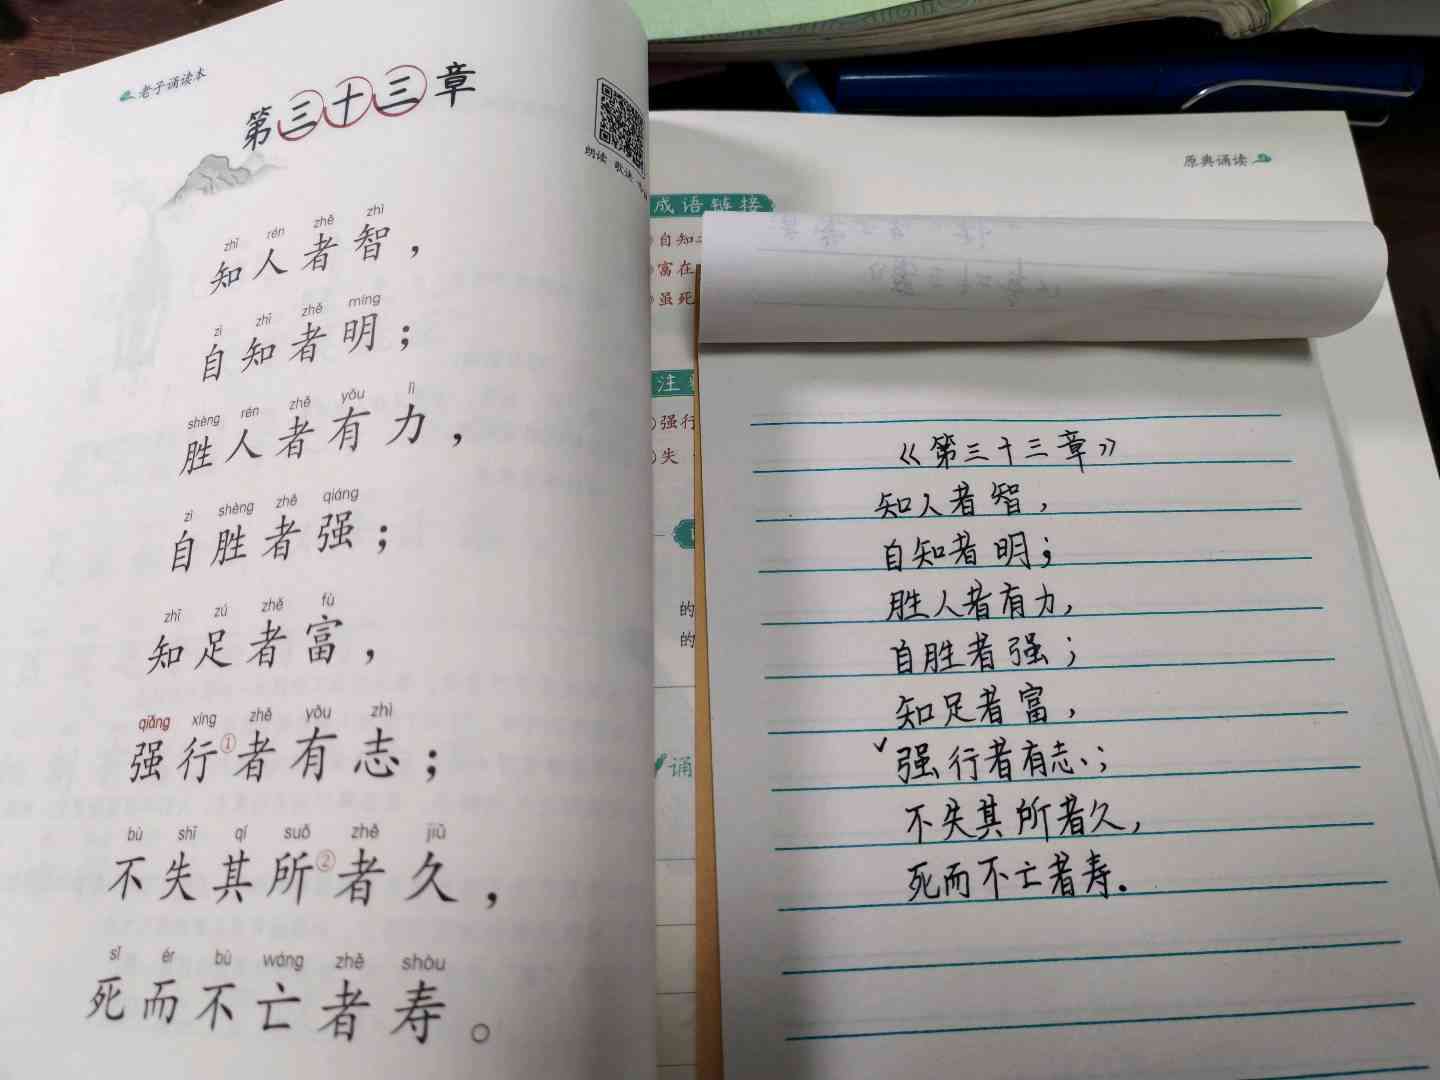 老子诵读本
第三十三章
朗读
zhī rén zhě zhì
知人者智，
zì zhī zhě míng
自知者明；
shèng rén zhě yǒu lì
胜人者有力，
zì shèng zhě qiáng
自胜者强；
zhī zú zhě fù
知足者富，
qiǎng xíng zhě yǒu zhì
强行①者有志；
bù shī qí suǒ zhě jiǔ
不失其所②者久，
sǐ ér bù wáng zhě shòu
死而不亡者寿。
原典诵读
成语链接
自知
富在
虽死
注
强行
失
的
的
诵
《第三十三章》
知人者智，
自知者明；
胜人者有力，
自胜者强；
知足者富，
✓强行者有志；
不失其所者久，
死而不亡者寿。